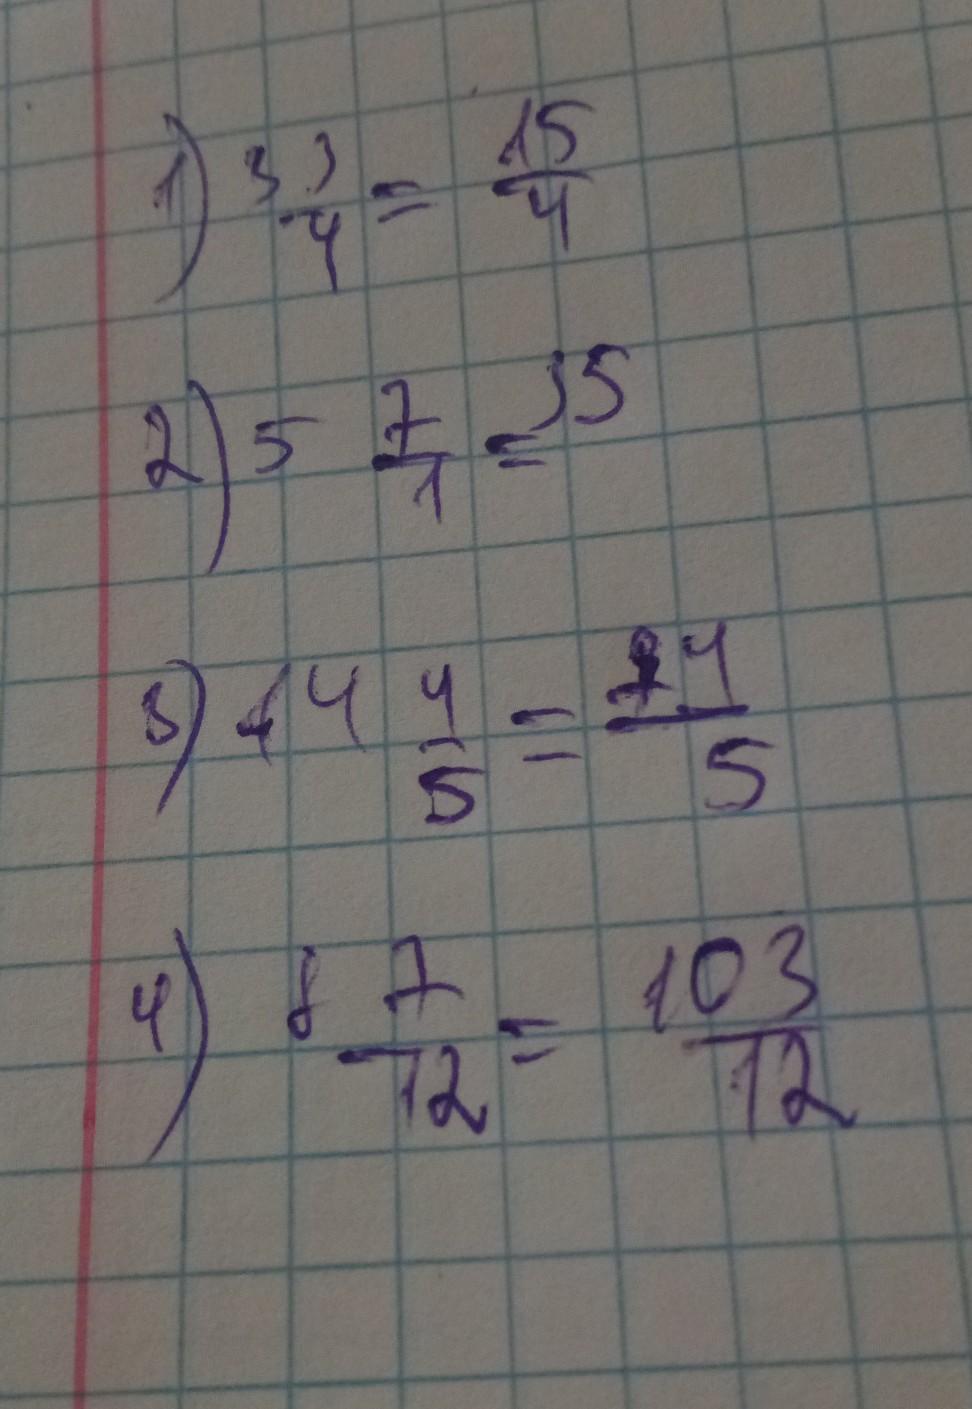 1) 3 3/4 = 15/4
2) 5 7/1 = 35
3) 14 4/5 = 74/5
4) 8 7/12 = 103/12